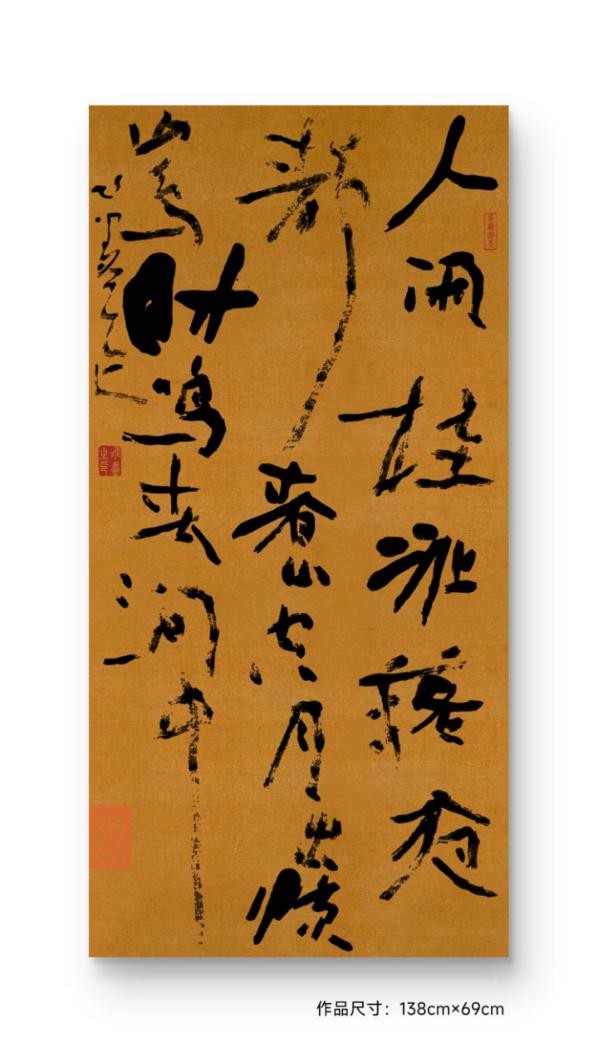 人閑桂花落夜
靜春山空月出惊
山鳥时鳴春澗中
作品尺寸：138cm×69cm